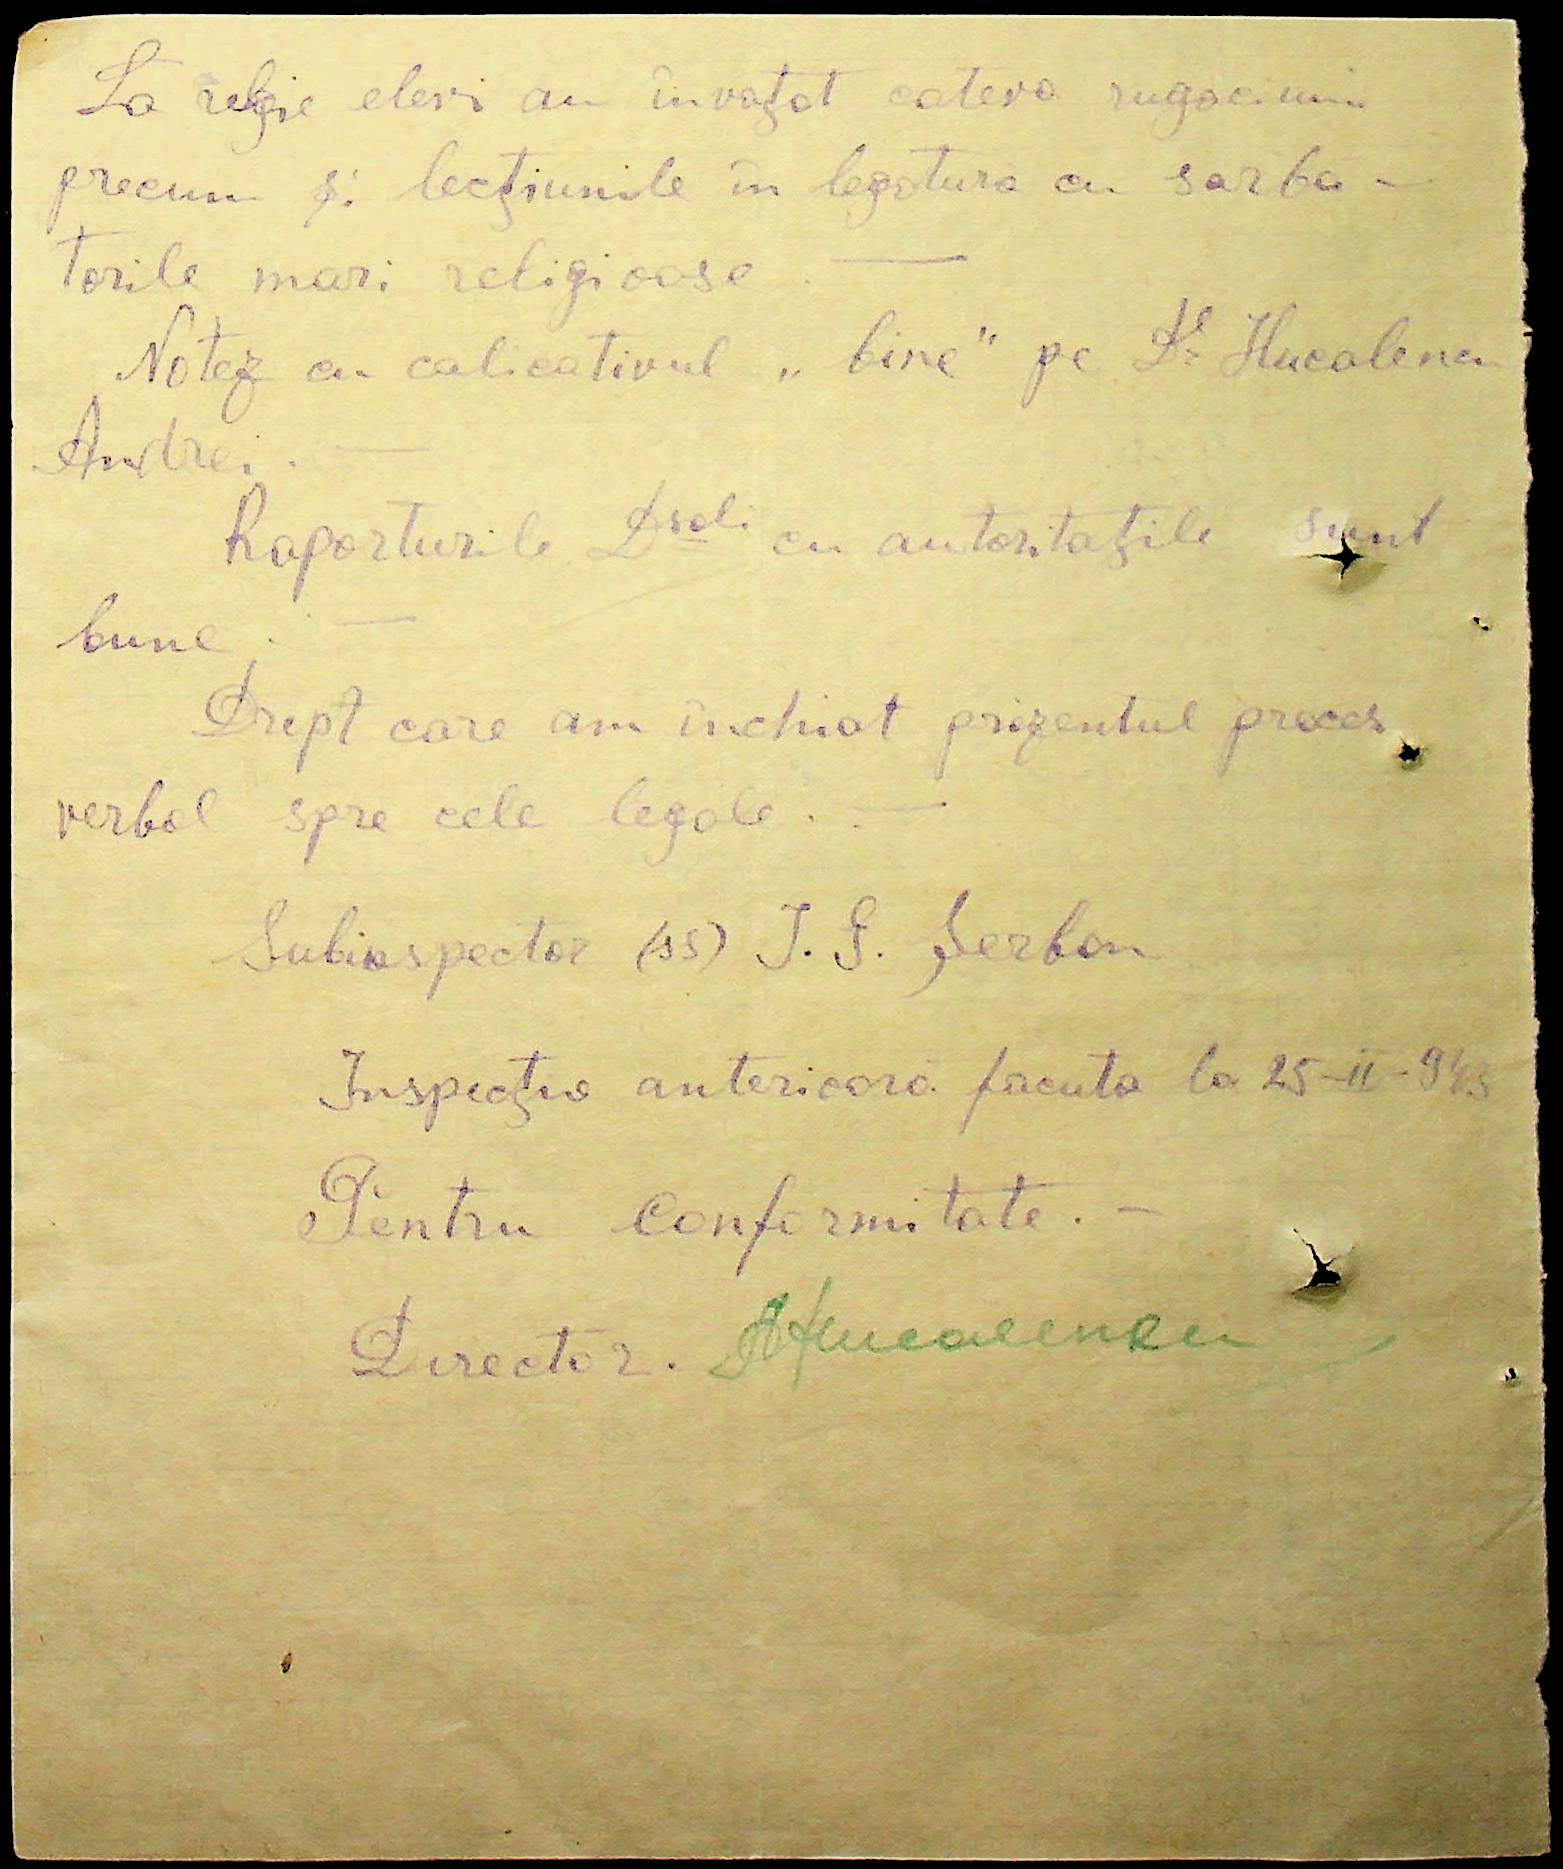 La religie elevi au învațat cateva rugaciuni
precum și lecțiunile în legatura cu sarba-
torile mari religioase. —
Notez cu calicativul „bine" pe Dl Hucalencu
Andrei. —
Raporturile Dsale cu autoritațile sunt
bune. —
Drept care am închiat prezentul proces
verbal spre cele legale. —
Subinspector (ss) I. G. Șerban
Inspecția anterioară facuta la 25-II-943
Pentru Conformitate. —
Director. AHucalencu